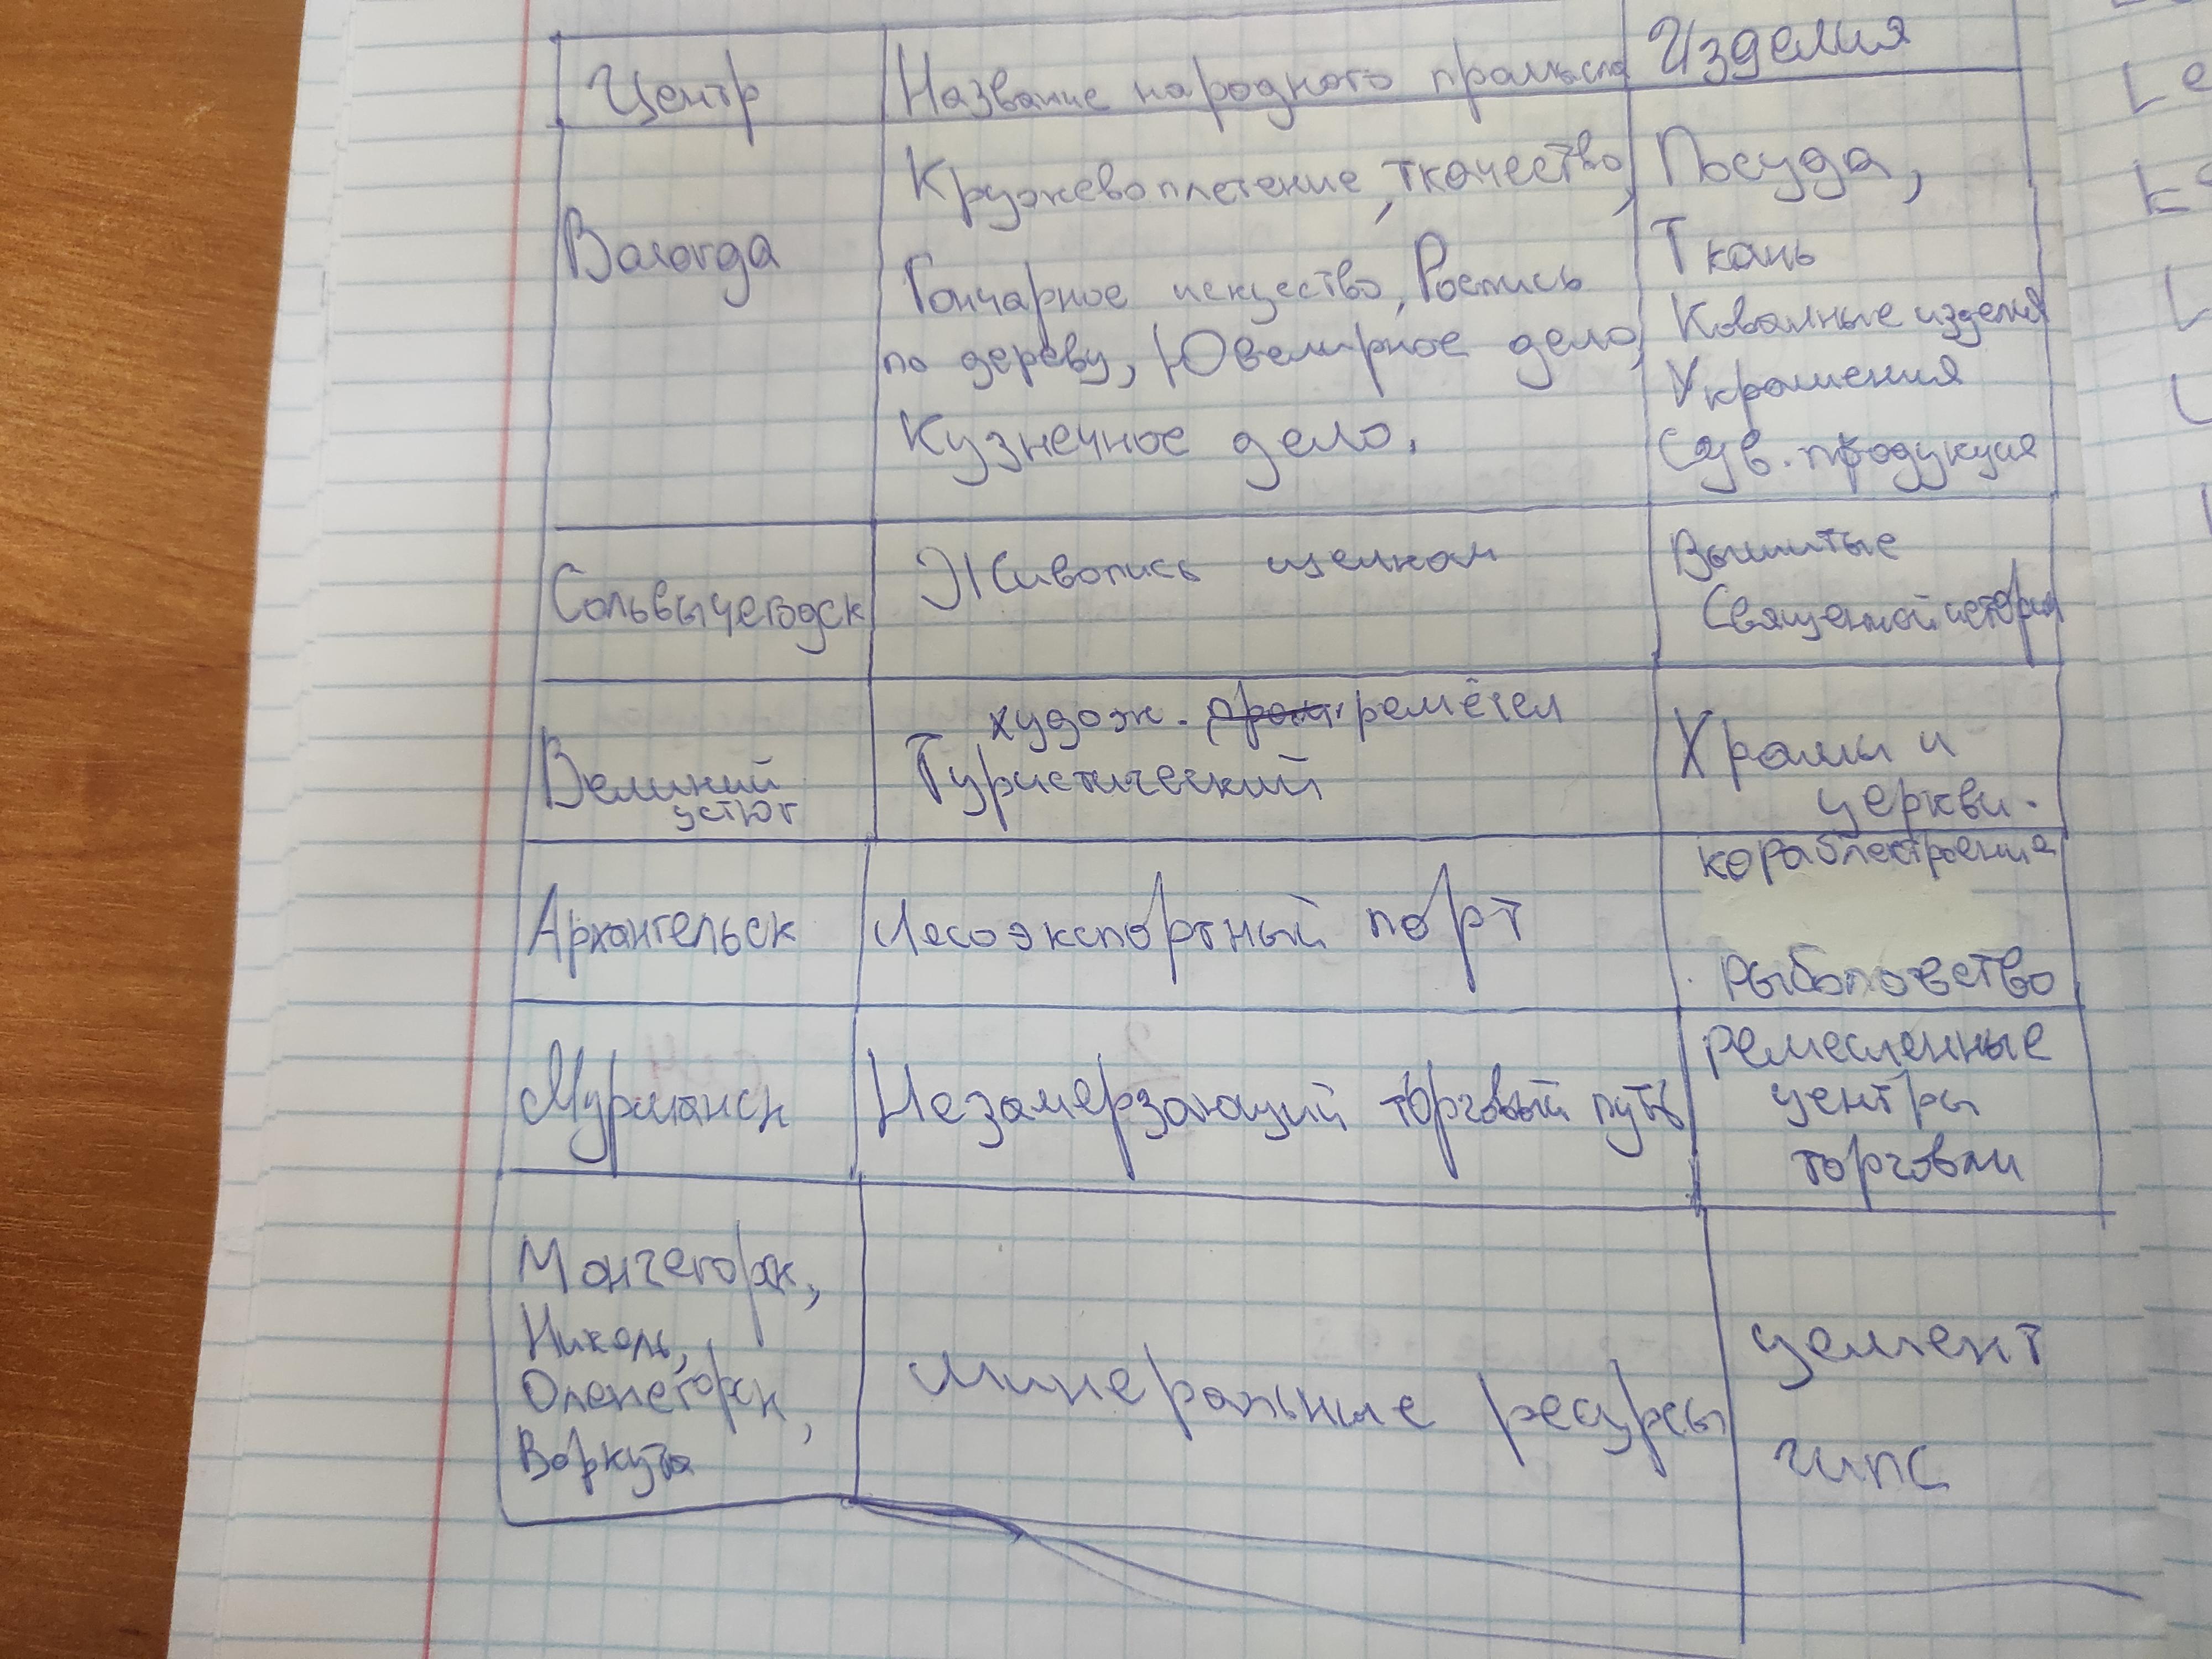 Центр
Название народного промысла
Изделия
Вологда
Кружевоплетение, ткачество,
Гончарное искуество, Роспись
по дереву, Ювелирное дело,
Кузнечное дело.
Посуда,
Ткань
Кованные изделия
Украшения
Сув. продукция
Сольвычегодск
Живопись шелком
Вышитые
Священной истории
Великий
устюг
худож. ремёсел
Туристический
Храмы и
церкви.
Архангельск
Лесоэкспортный порт
кораблестроение
рыболовство
Мурманск
Незамерзающий торговый путь
ремесленные
центры
торговли
Мончегорск,
Никель,
Оленегорск,
Воркута
минеральные ресурсы
цемент
гипс